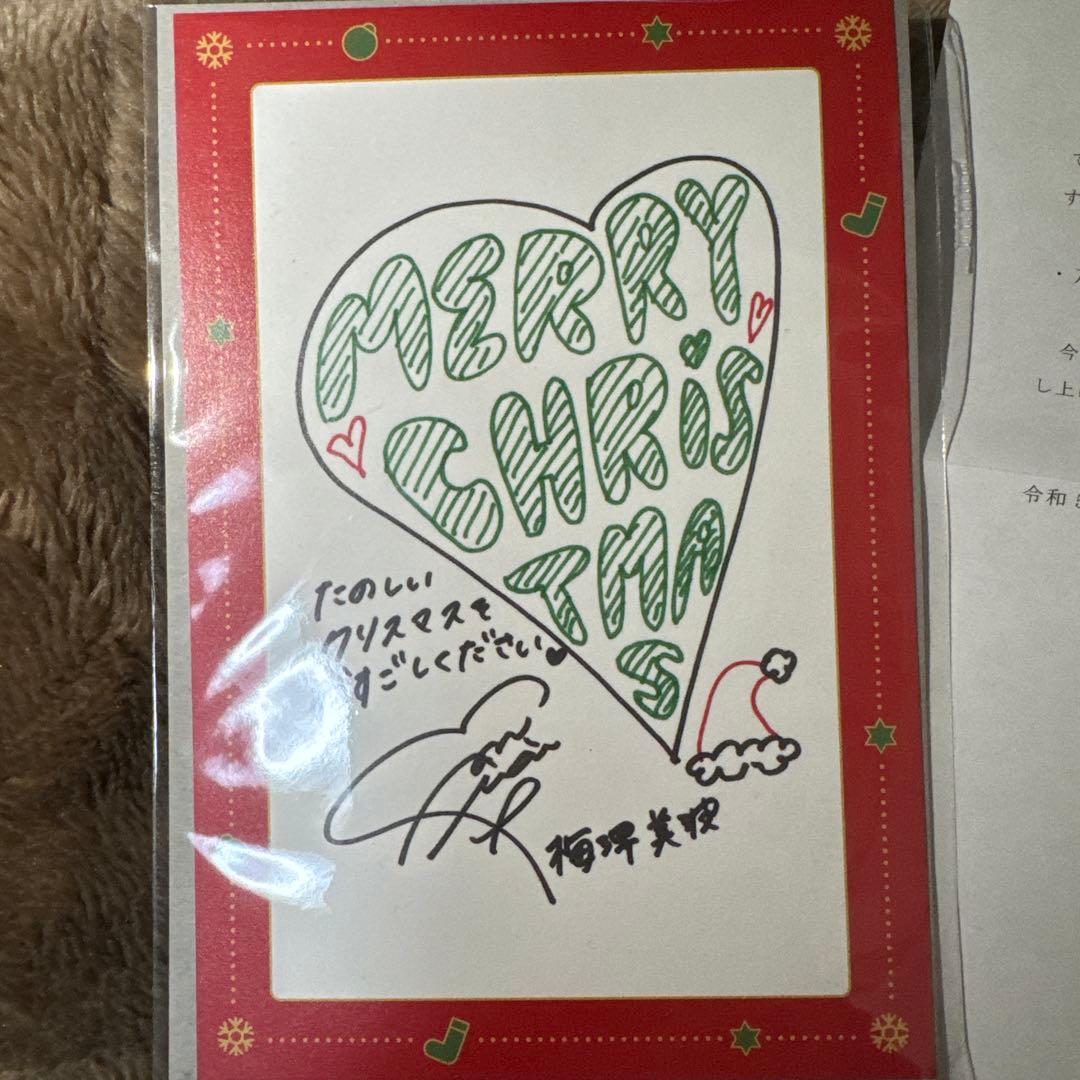 MERRY
CHRiS
TMA
S
たのしい
クリスマスを
すごしください
梅澤美波
す
今
し上
令和5